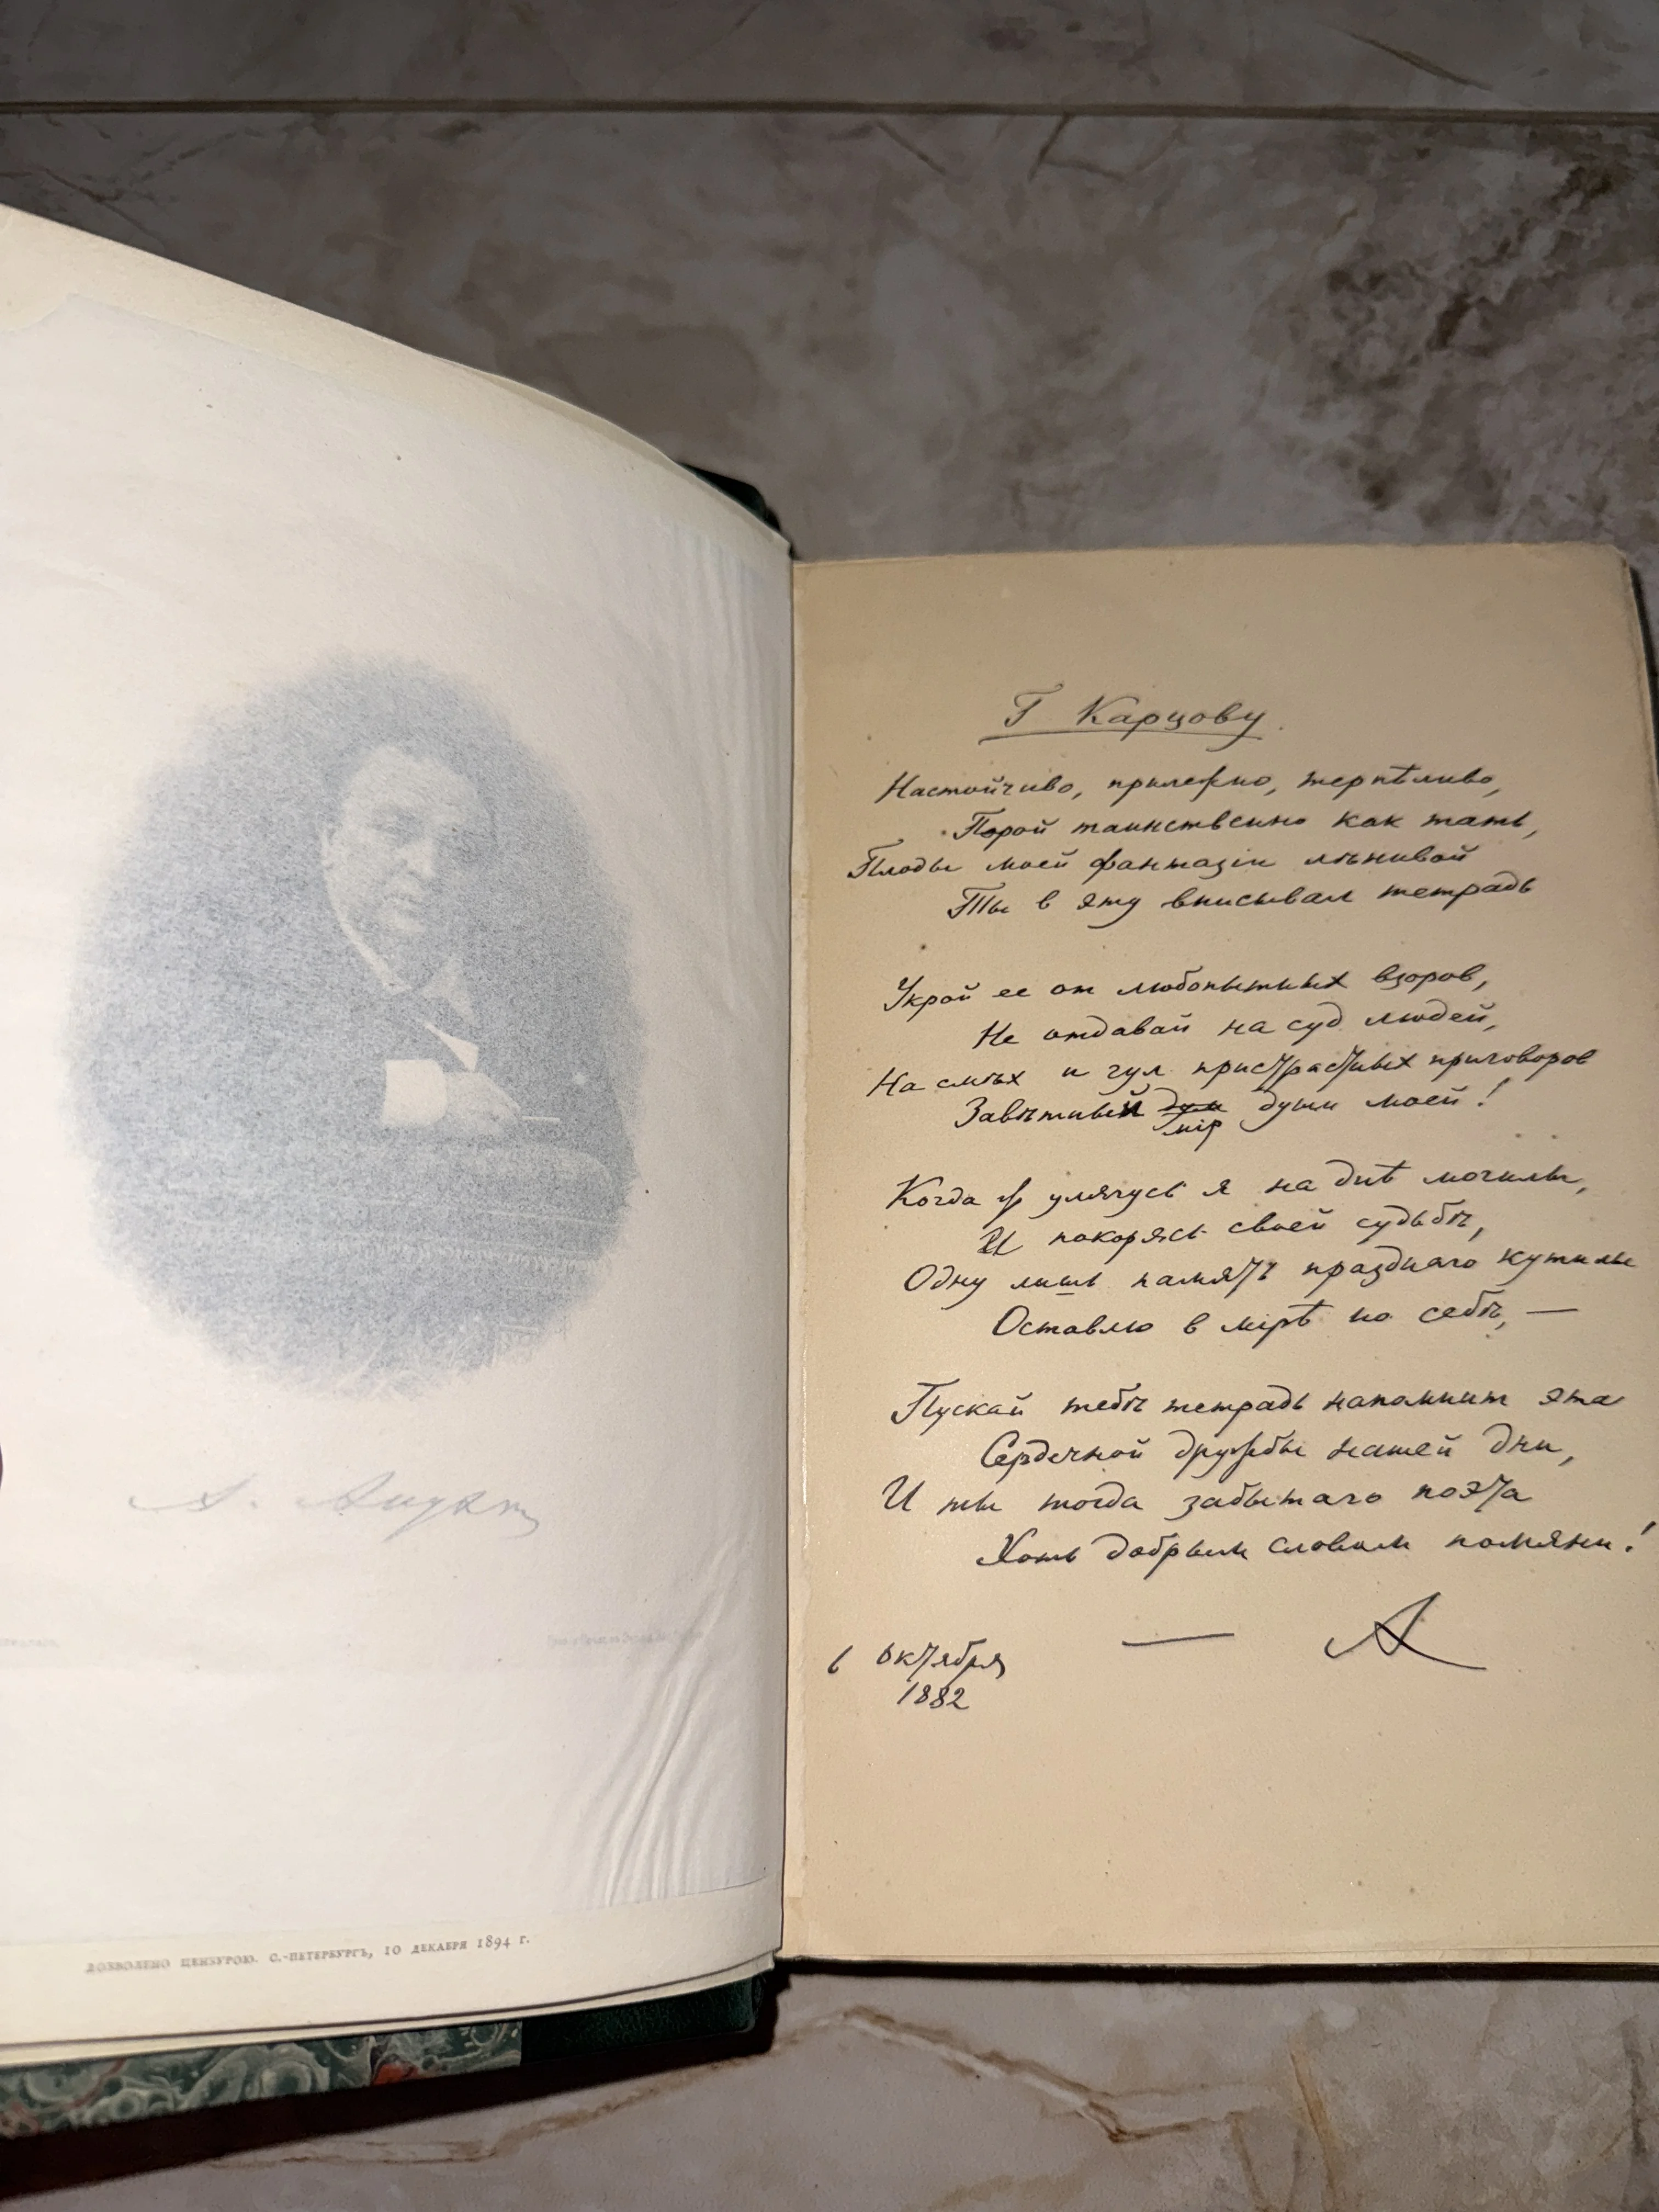 А. Апухтин
ДОЗВОЛЕНО ЦЕНЗУРОЮ. С.-ПЕТЕРБУРГЪ, 10 ДЕКАБРЯ 1894 Г.
Г Карцову.
Настойчиво, прилежно, терпѣливо,
Порой таинственно как тать,
Плоды моей фантазiи лѣнивой
Ты в эту вписывал тетрадь
Укрой ее от любопытных взоров,
Не отдавай на суд людей,
На смѣх и гул пристрастных приговоров
Завѣтный души моей!
мiр
Когда ж улягусь я на днѣ могилы,
И покорясь своей судьбѣ,
Одну лишь память празднаго кутилы
Оставлю в мiрѣ по себѣ, —
Пускай тебѣ тетрадь напомнит эта
Сердечной дружбы нашей дни,
И ты тогда забытаго поэта
Хоть добрым словом помяни!
— А
6 октября
1882